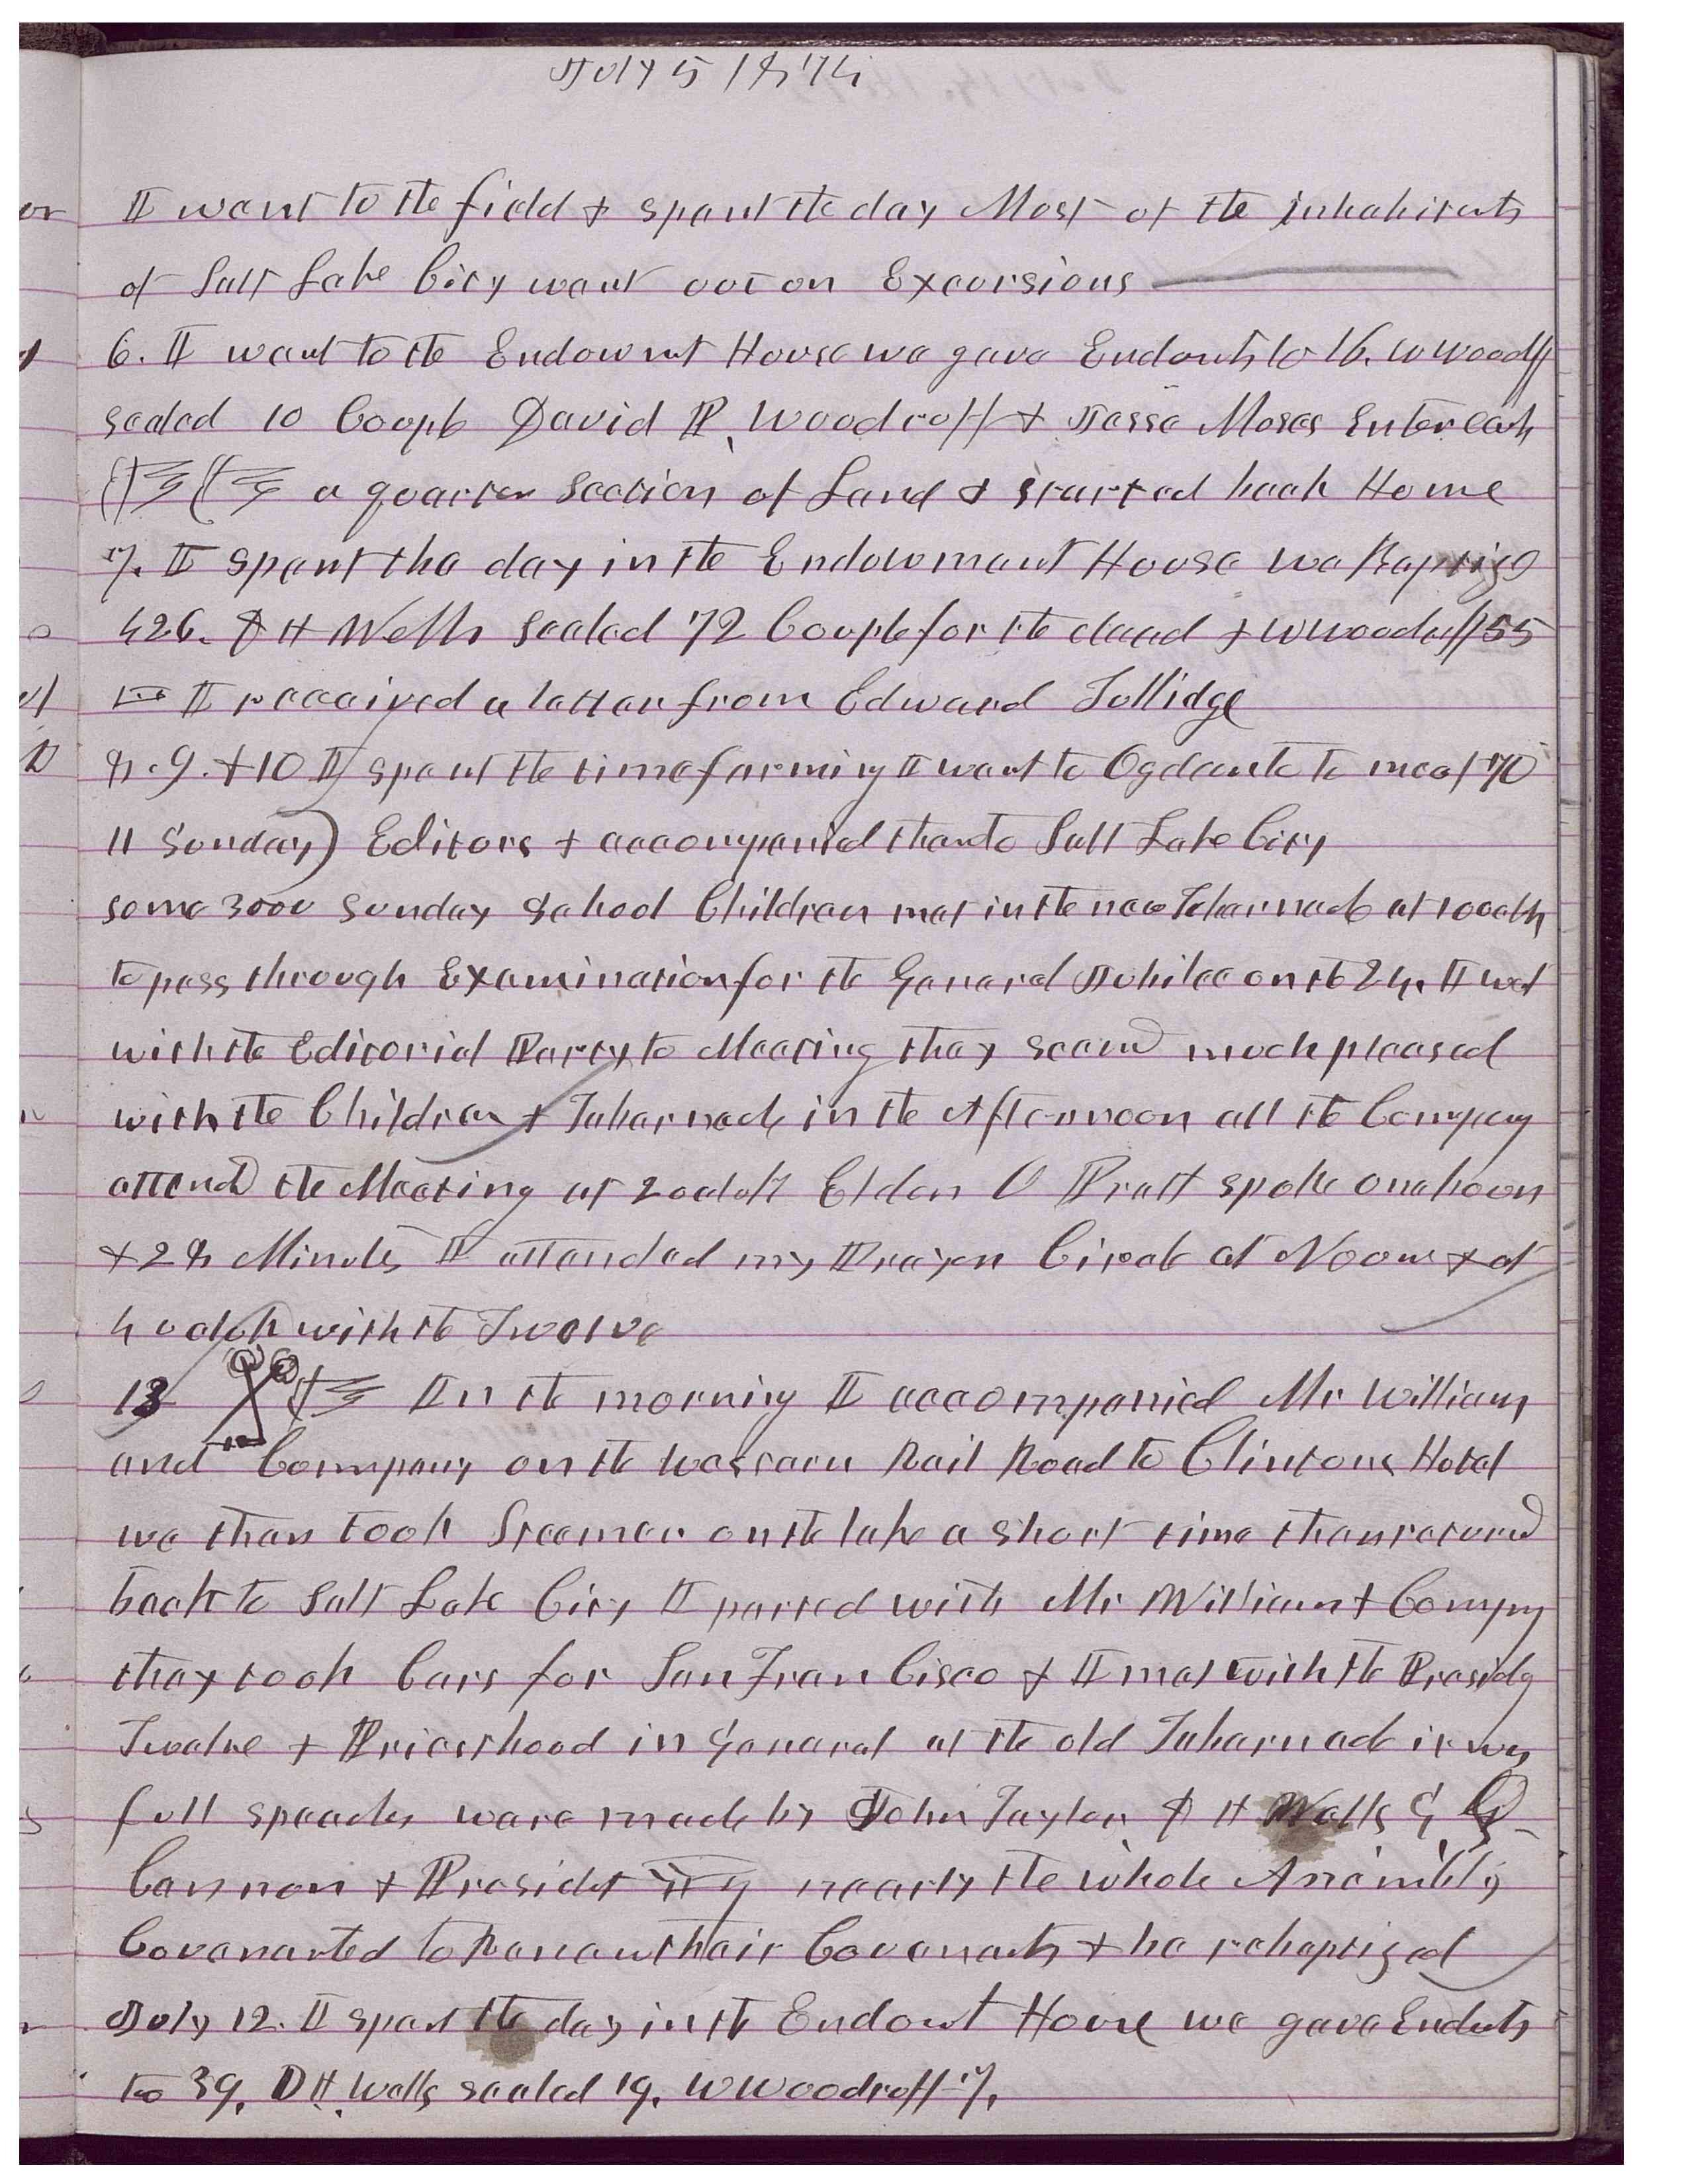 July 5 1874
I went to the field & spent the day Most of the inhabitants
of Salt Lake City went out on Excursions
6. I went to the Endowmt House we gave Endowts to 16. W Woodruff
sealed 10 Coupls David P. Woodruff & Jesse Moses Enter each
a quarter Section of Land & started back Home
7. I spent the day in the Endowment House we Baptized
426. D H Wells Sealed 72 Couple for the dead & W Woodruff 55
I received a letter from Edward Tullidge
8. 9. & 10 I spent the time farming I went to Ogden to meet 70
11 Sunday) Editors & accompanied them to Salt Lake City
some 3000 Sunday School Children met in the new Tabernacle at 10 oclok
to pass through Examination for the General Jubilee on the 24. I went
with the Editorial Party to Meeting they seemd much pleased
with the Children & Tabernacle in the Afternoon all the Company
attend the Meeting at 2 oclok Elder O Pratt spoke one hour
& 28 Minutes I attended my Prayer Circle at Noon & at
4 oclok with the Twelve
13 In the morning I accompanied Mr William
and Company on the western Rail Road to Clintons Hotel
we then took Steamer on the lake a short time then returnd
back to Salt Lake City I parted with Mr William & Compny
they took Cars for San Fran Cisco & I met with the Presidg
Twelve & Priesthood in General at the old Tabernacle it was
full speeches were made by John Taylor D H Wells G Q
Cannon & Presidet nearly the whole Assembly
Covenanted to Renew their Covenants & be rebaptized
July 12. I spent the day in the Endowt House we gave Endwts
to 39, D H. Wells sealed 19, W Woodruff 7,